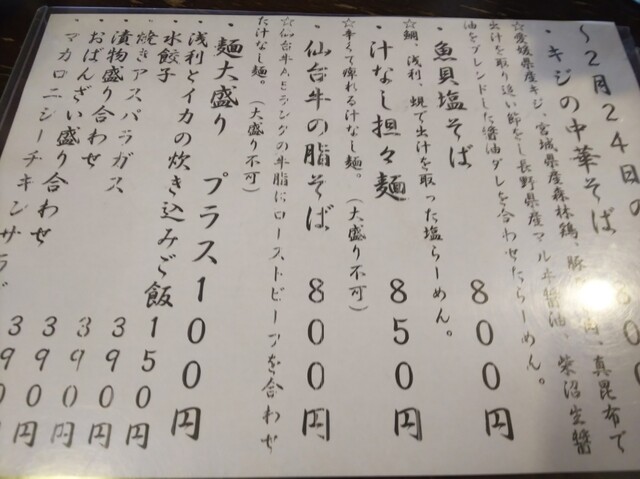 〜2月24日の
・キジの中華そば 800
☆愛媛県産キジ、宮城県産森林鶏、豚、真昆布で
出汁を取り追い節をし長野県産マルヰ醤油、柴沼生醤
油をブレンドした醤油ダレを合わせたらーめん。
・魚貝塩そば 800円
☆鯛、浅利、蜆で出汁を取った塩らーめん。
・汁なし担々麺 850円
☆辛くて痺れる汁なし麺。(大盛り不可)
・仙台牛の脂そば 800円
☆仙台牛A5ランクの牛脂にローストビーフを合わせ
た汁なし麺。(大盛り不可)
・麺大盛り プラス100円
浅利とイカの炊き込みご飯 150円
水餃子 390円
・焼きアスパラガス 390円
・漬物盛り合わせ 390円
・おばんざい盛り合わせ 390円
マカロニシーチキンサラダ